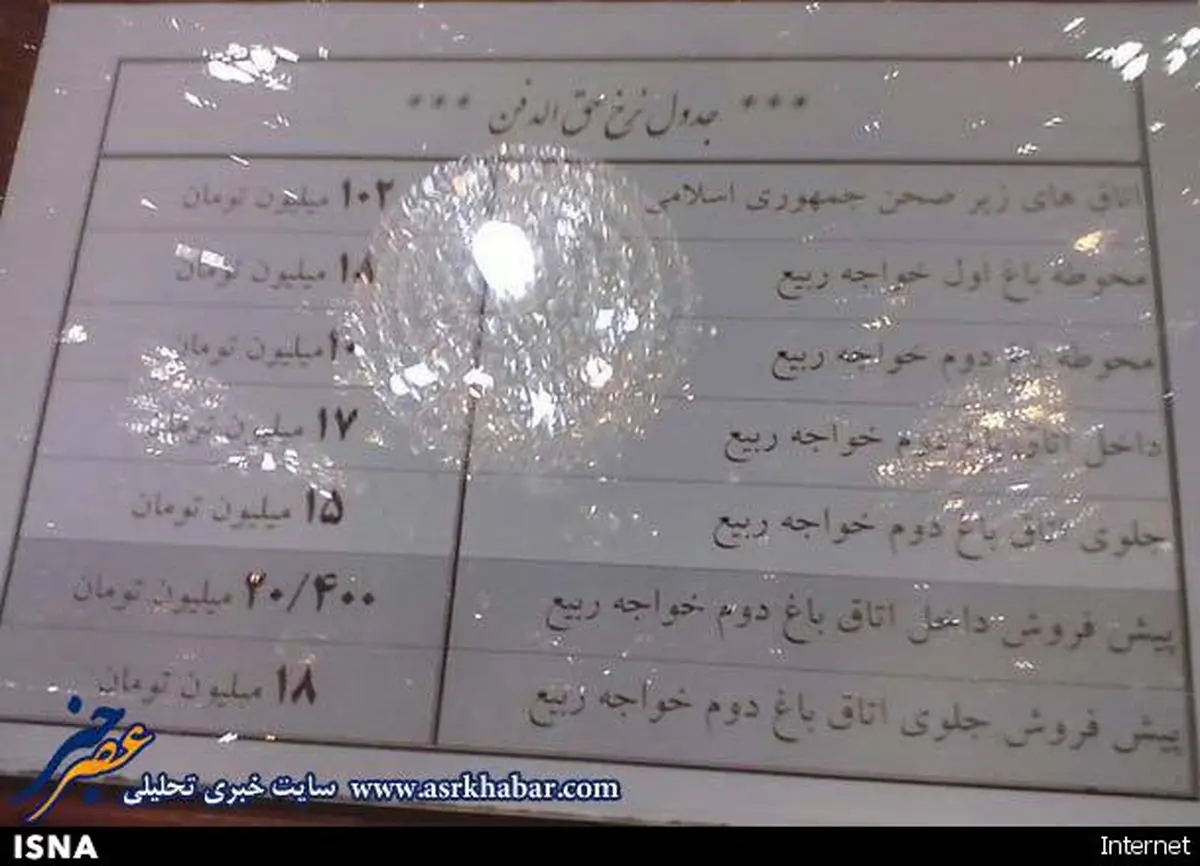 *** جدول نرخ حق الدفن ***
اتاق های زیر صحن جمهوری اسلامی ۱۰۲ میلیون تومان
محوطه باغ اول خواجه ربیع ۱۸ میلیون تومان
محوطه باغ دوم خواجه ربیع ۱۰ میلیون تومان
داخل اتاق باغ دوم خواجه ربیع ۱۷ میلیون تومان
جلوی اتاق باغ دوم خواجه ربیع ۱۵ میلیون تومان
پیش فروش داخل اتاق باغ دوم خواجه ربیع ۲۰/۴۰۰ میلیون تومان
پیش فروش جلوی اتاق باغ دوم خواجه ربیع ۱۸ میلیون تومان
عصر خبر
سایت خبری تحلیلی www.asrkhabar.com
ISNA
Internet